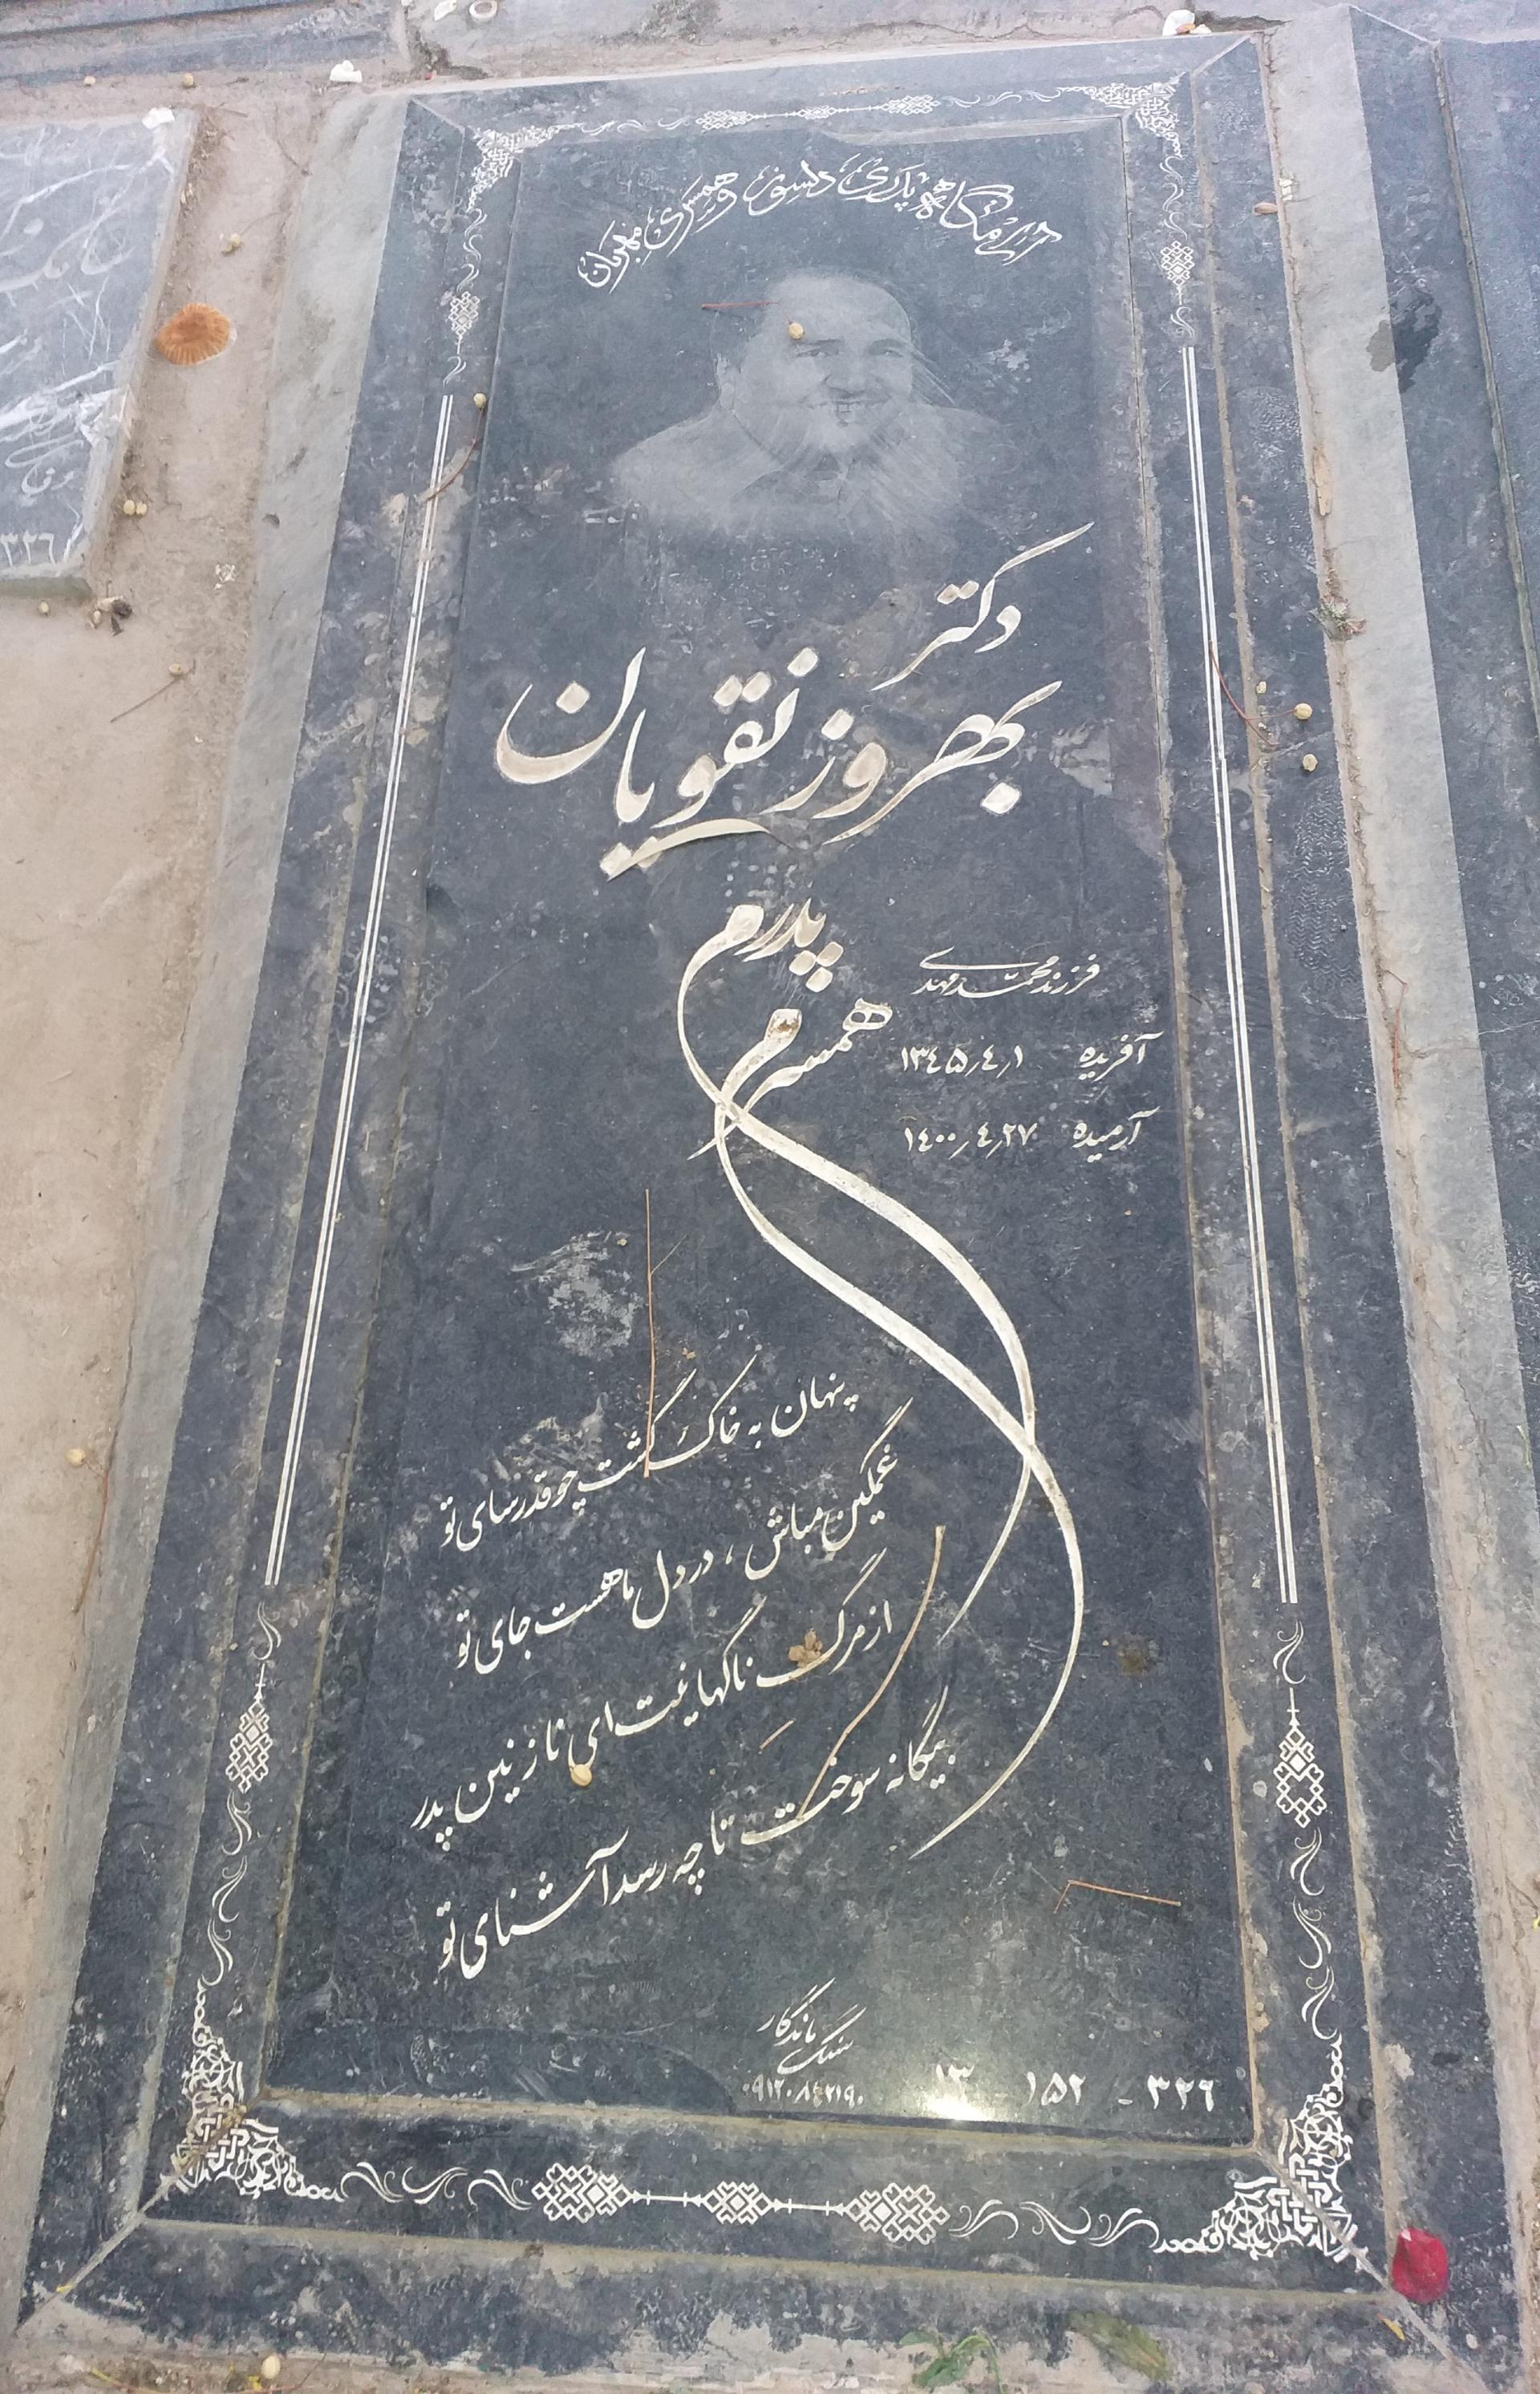 آرامگاه پدری دلسوز و همسری مهربان
دکتر
بهروز نقویان
پدرم
همسرم
فرزند محمدمهدی
آفریده ۱۳۴۵٫۴٫۱
آرمیده ۱۴۰۰٫۴٫۲۷
پنهان به خاک گشت چو قد رسای تو
غمگین مباش، در دل ما هست جای تو
از مرگ ناگهانیت ای نازنین پدر
بیگانه سوخت تا چه رسد آشنای تو
سنگ ماندگار
۰۹۱۲۰۸۴۲۱۹۰
۳۲۶ - ۱۵۲ - ۱۳
۳۲۶